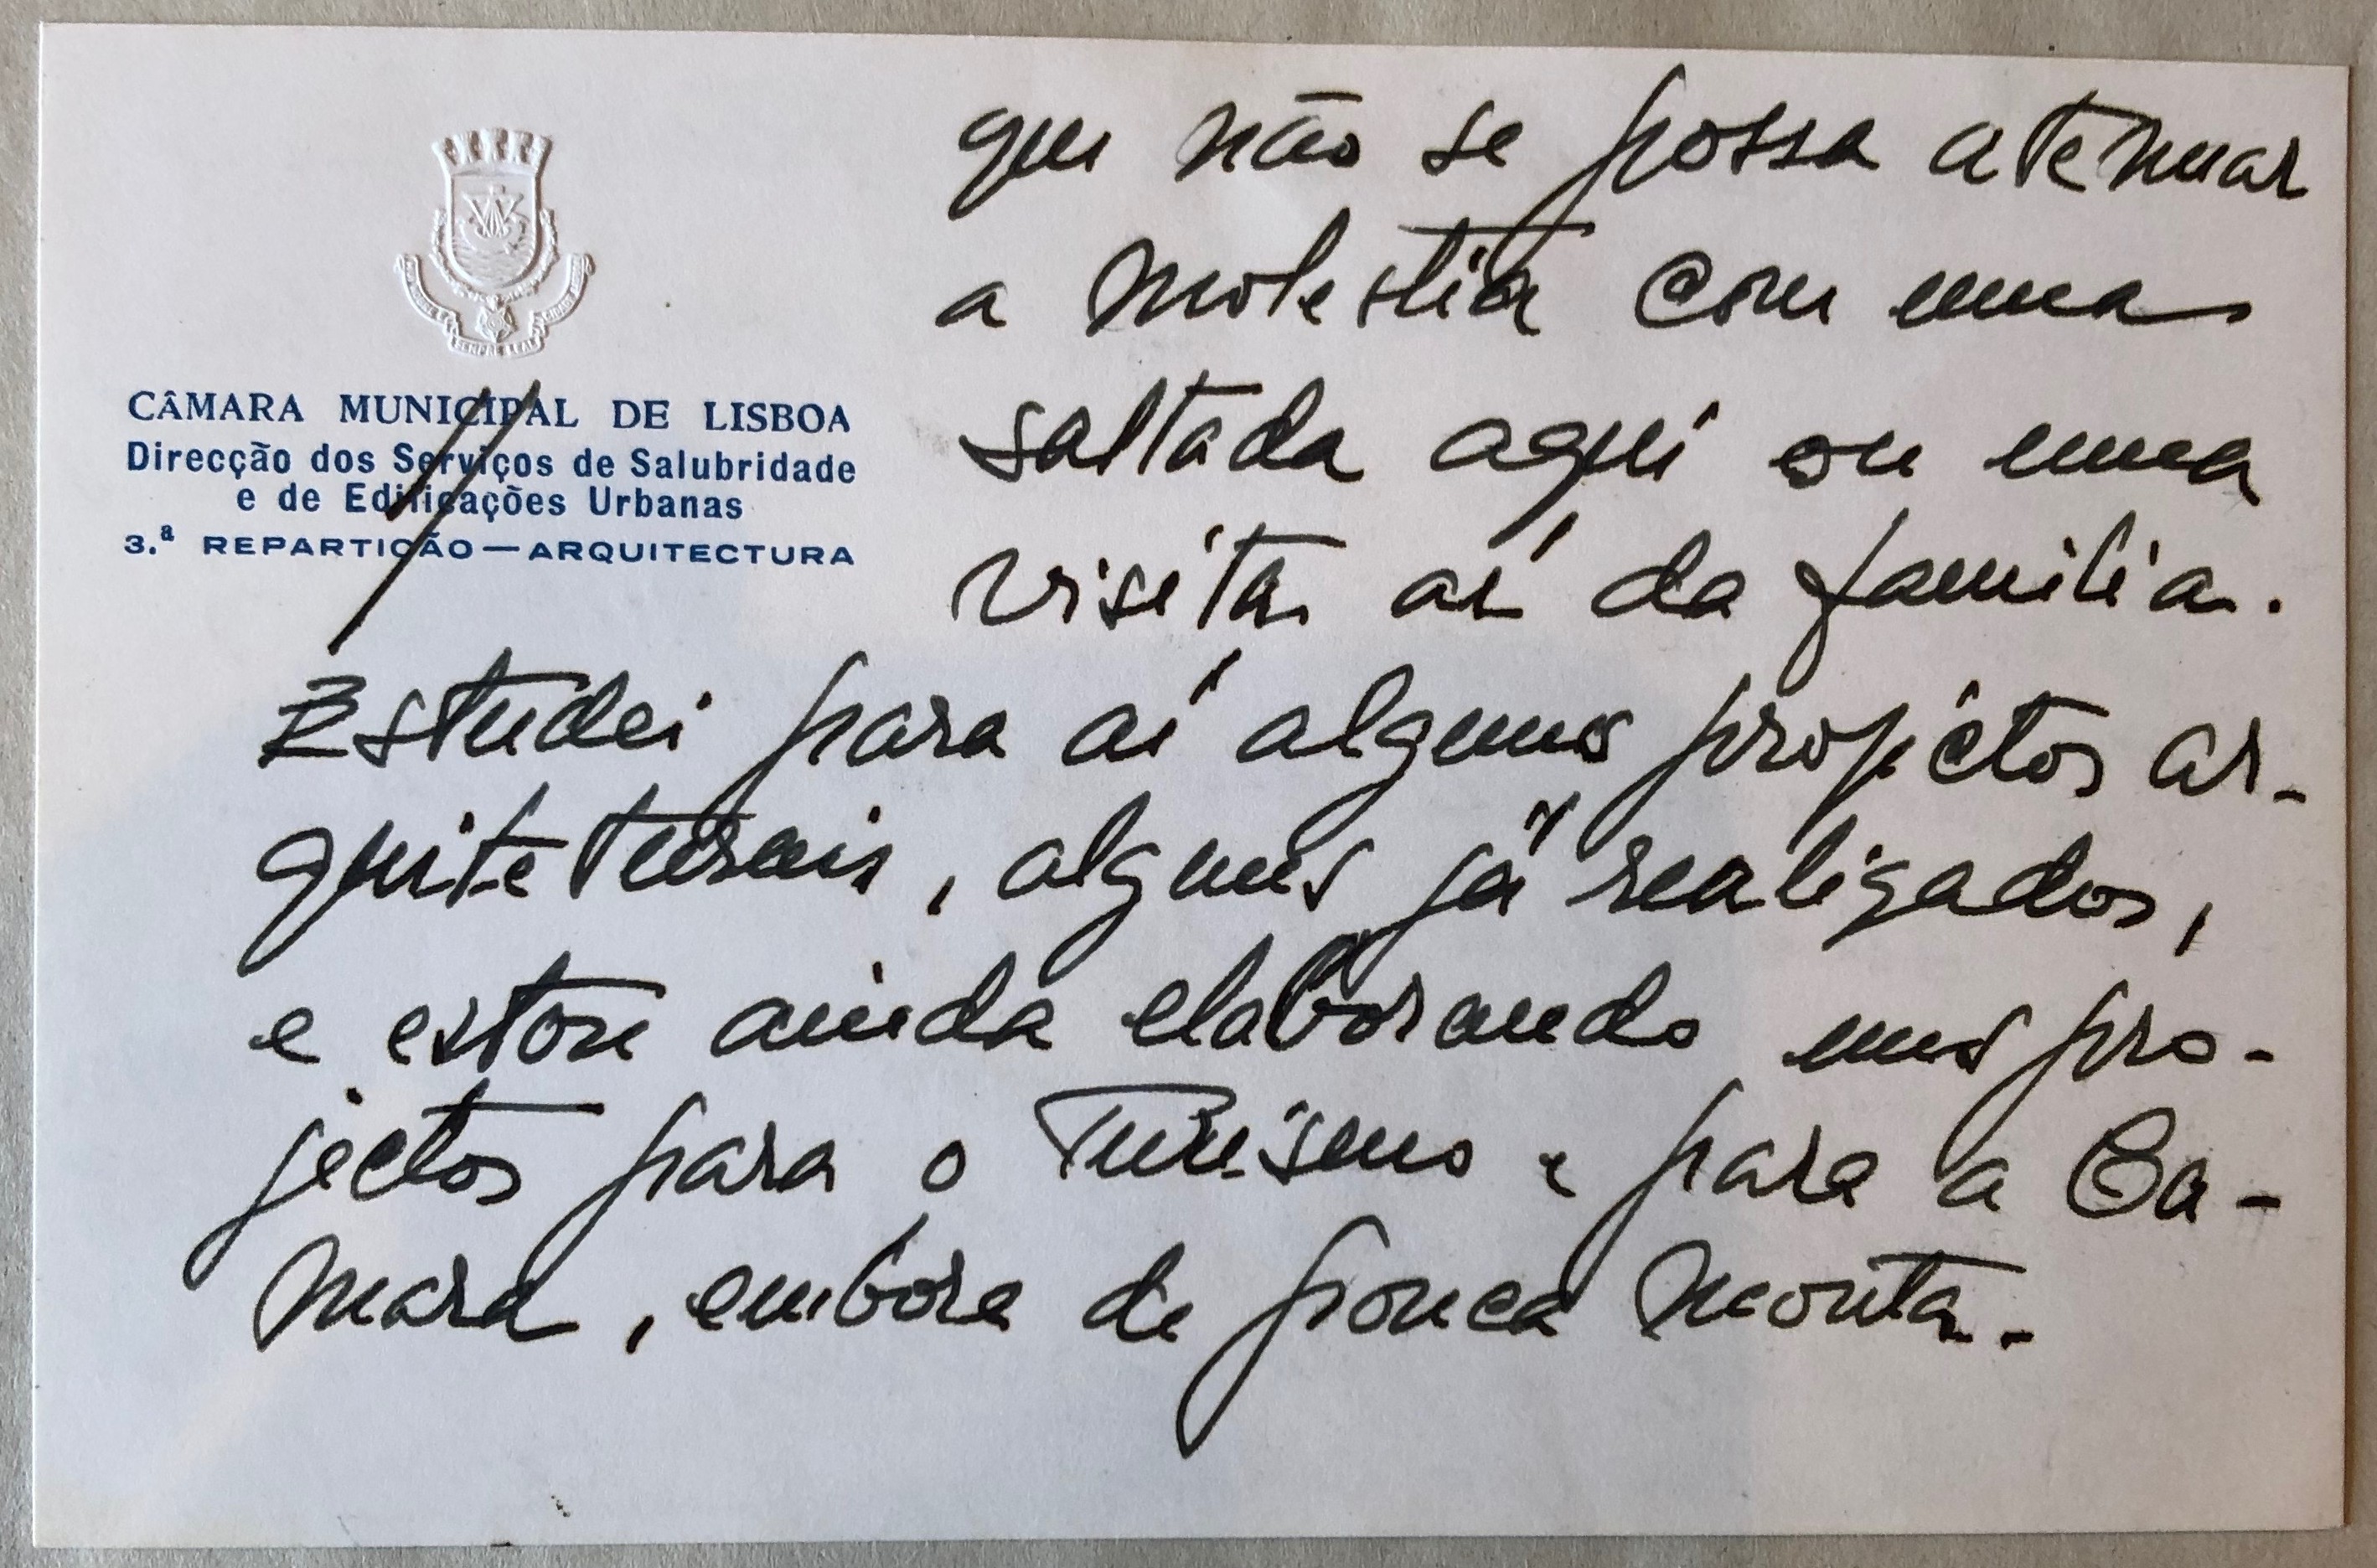 CÂMARA MUNICIPAL DE LISBOA
Direcção dos Serviços de Salubridade
e de Edificações Urbanas
3.ª REPARTIÇÃO—ARQUITECTURA
que não se possa atenuar
a molestia com uma
saltada aqui ou uma
visita aí da familia.
Estudei para aí alguns projéctos ar-
quiteturais, alguns já realizados,
e estou ainda elaborando uns pro-
jectos para o Turismo e para a Ca-
mara, embora de pouca monta.